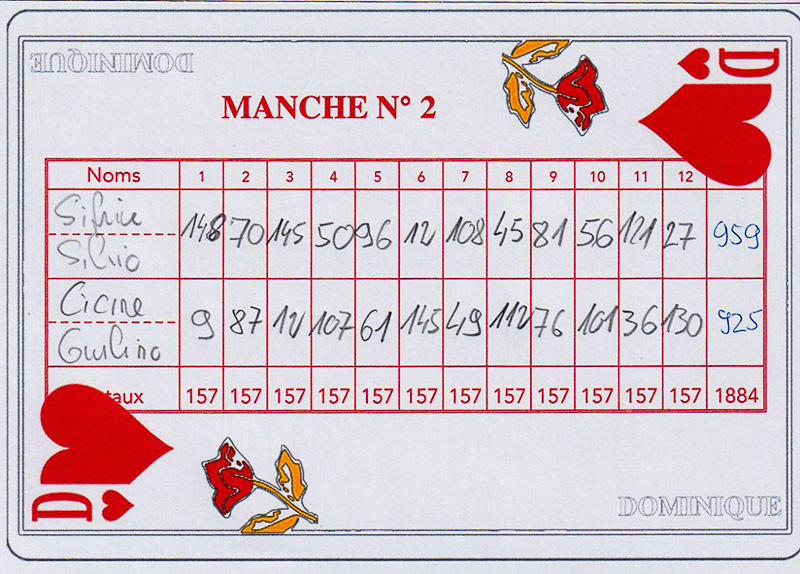 DOMINIQUE
D
MANCHE N° 2
Noms 1 2 3 4 5 6 7 8 9 10 11 12
148 70 145 50 96 12 108 45 81 56 121 27 959
Silvio
Cicine
9 87 12 107 61 145 49 112 76 101 36 130 925
taux 157 157 157 157 157 157 157 157 157 157 157 157 1884
D
DOMINIQUE